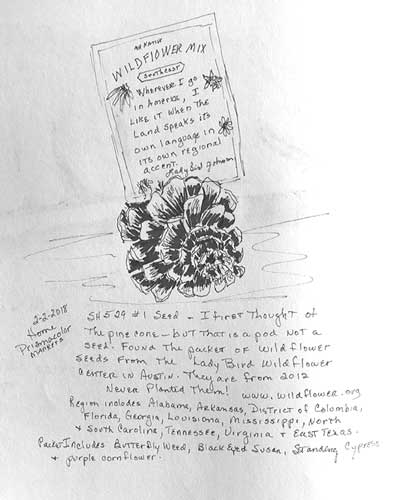 All Native
WILDFLOWER MIX
Southeast
Wherever I go
in America, I
Like it when the
Land speaks its
own language in
its own regional
accent.
Lady Bird Johnson
2-2-2018
Home
Prismacolor
markers
SH529 #1 Seed - I first Thought of
The pine cone - but That is a pod not a
seed. Found The packet of Wildflower
Seeds From The Lady Bird Wildflower
Center in Austin. They are from 2012
Never Planted Them! www.wildflower.org
Region includes Alabama, Arkansas, District of Colombia,
Florida, Georgia, Louisiana, Mississippi, North
+ South Carolina, Tennessee, Virginia + East Texas.
Packet Includes Butterfly Weed, Black Eyed Susan, Standing Cypress
+ purple cornflower.